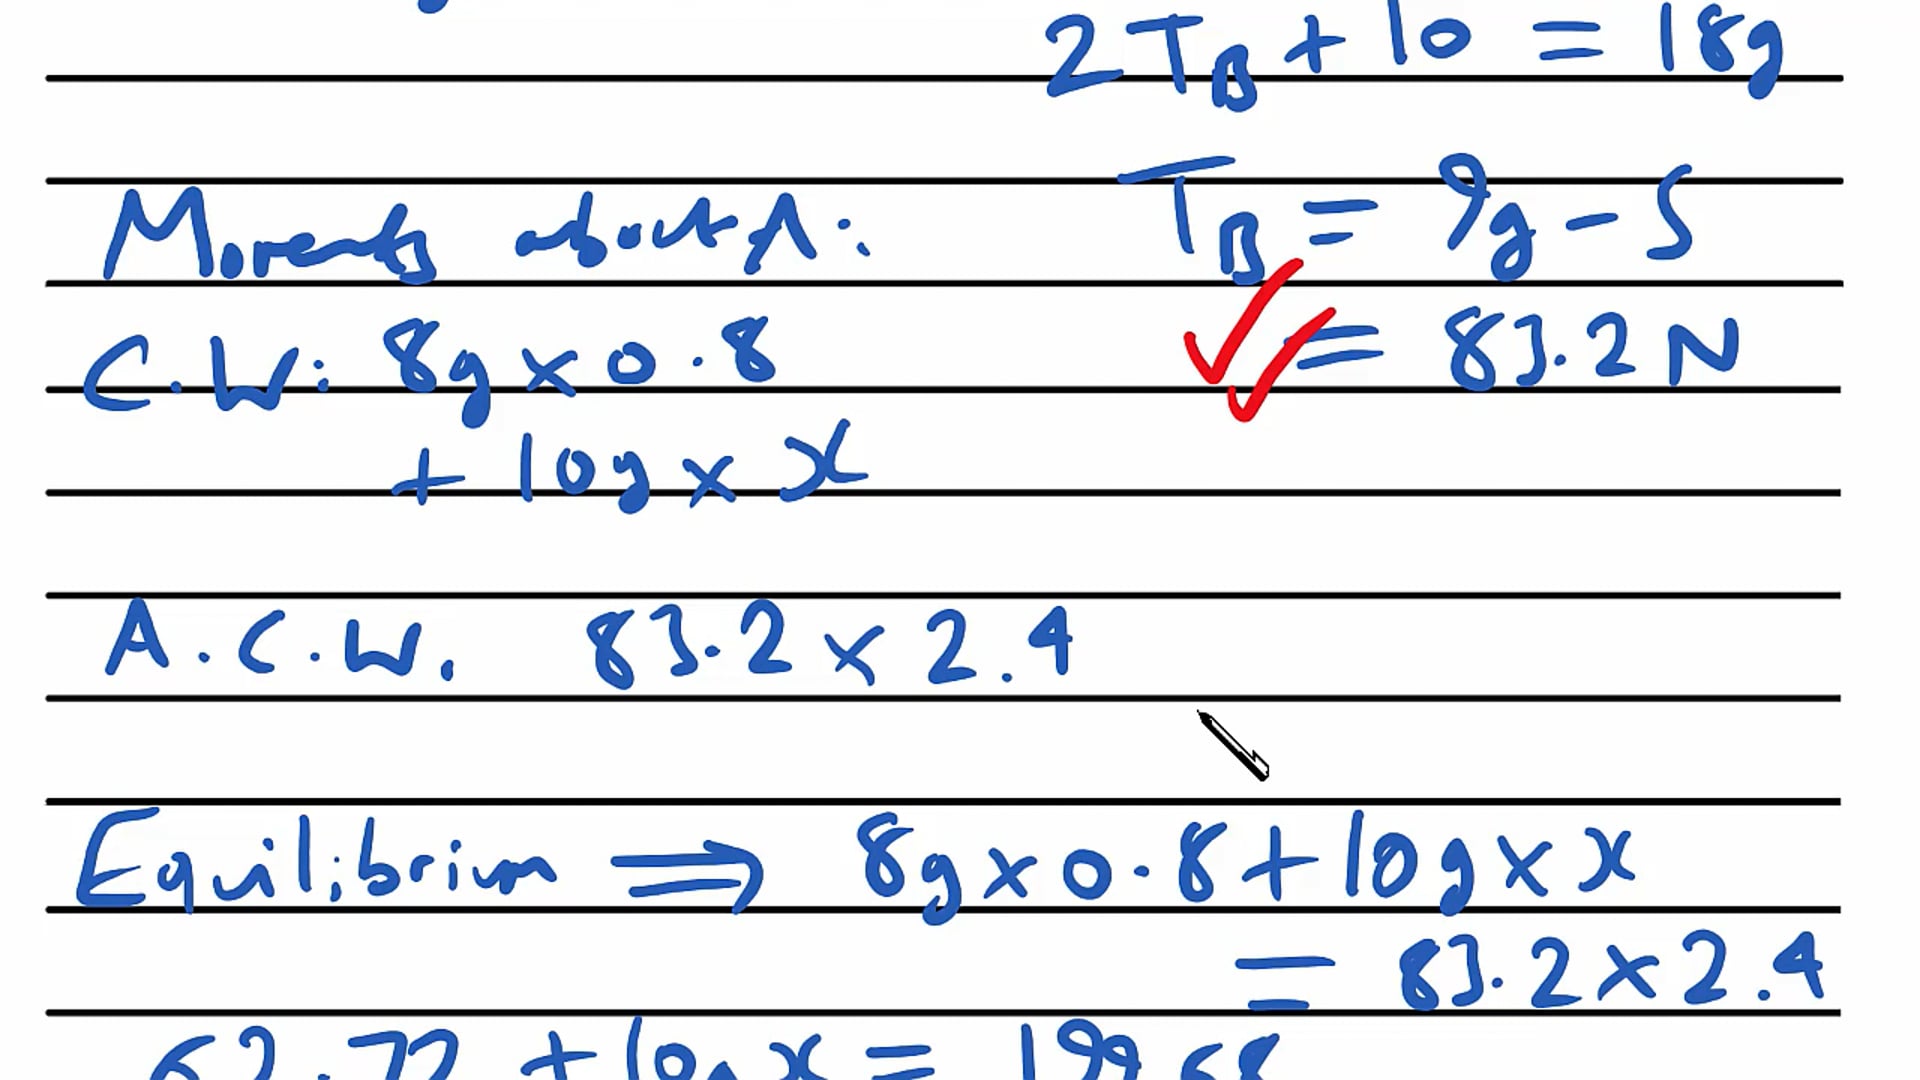 2T_B + 10 = 18g
T_B = 9g - 5
Moments about A:
= 83.2 N
C.W: 8g x 0.8
+ 10g x x
A.C.W. 83.2 x 2.4
Equilibrium ⟹ 8g x 0.8 + 10g x x
= 83.2 x 2.4
62.72 + 10g x = 199.68